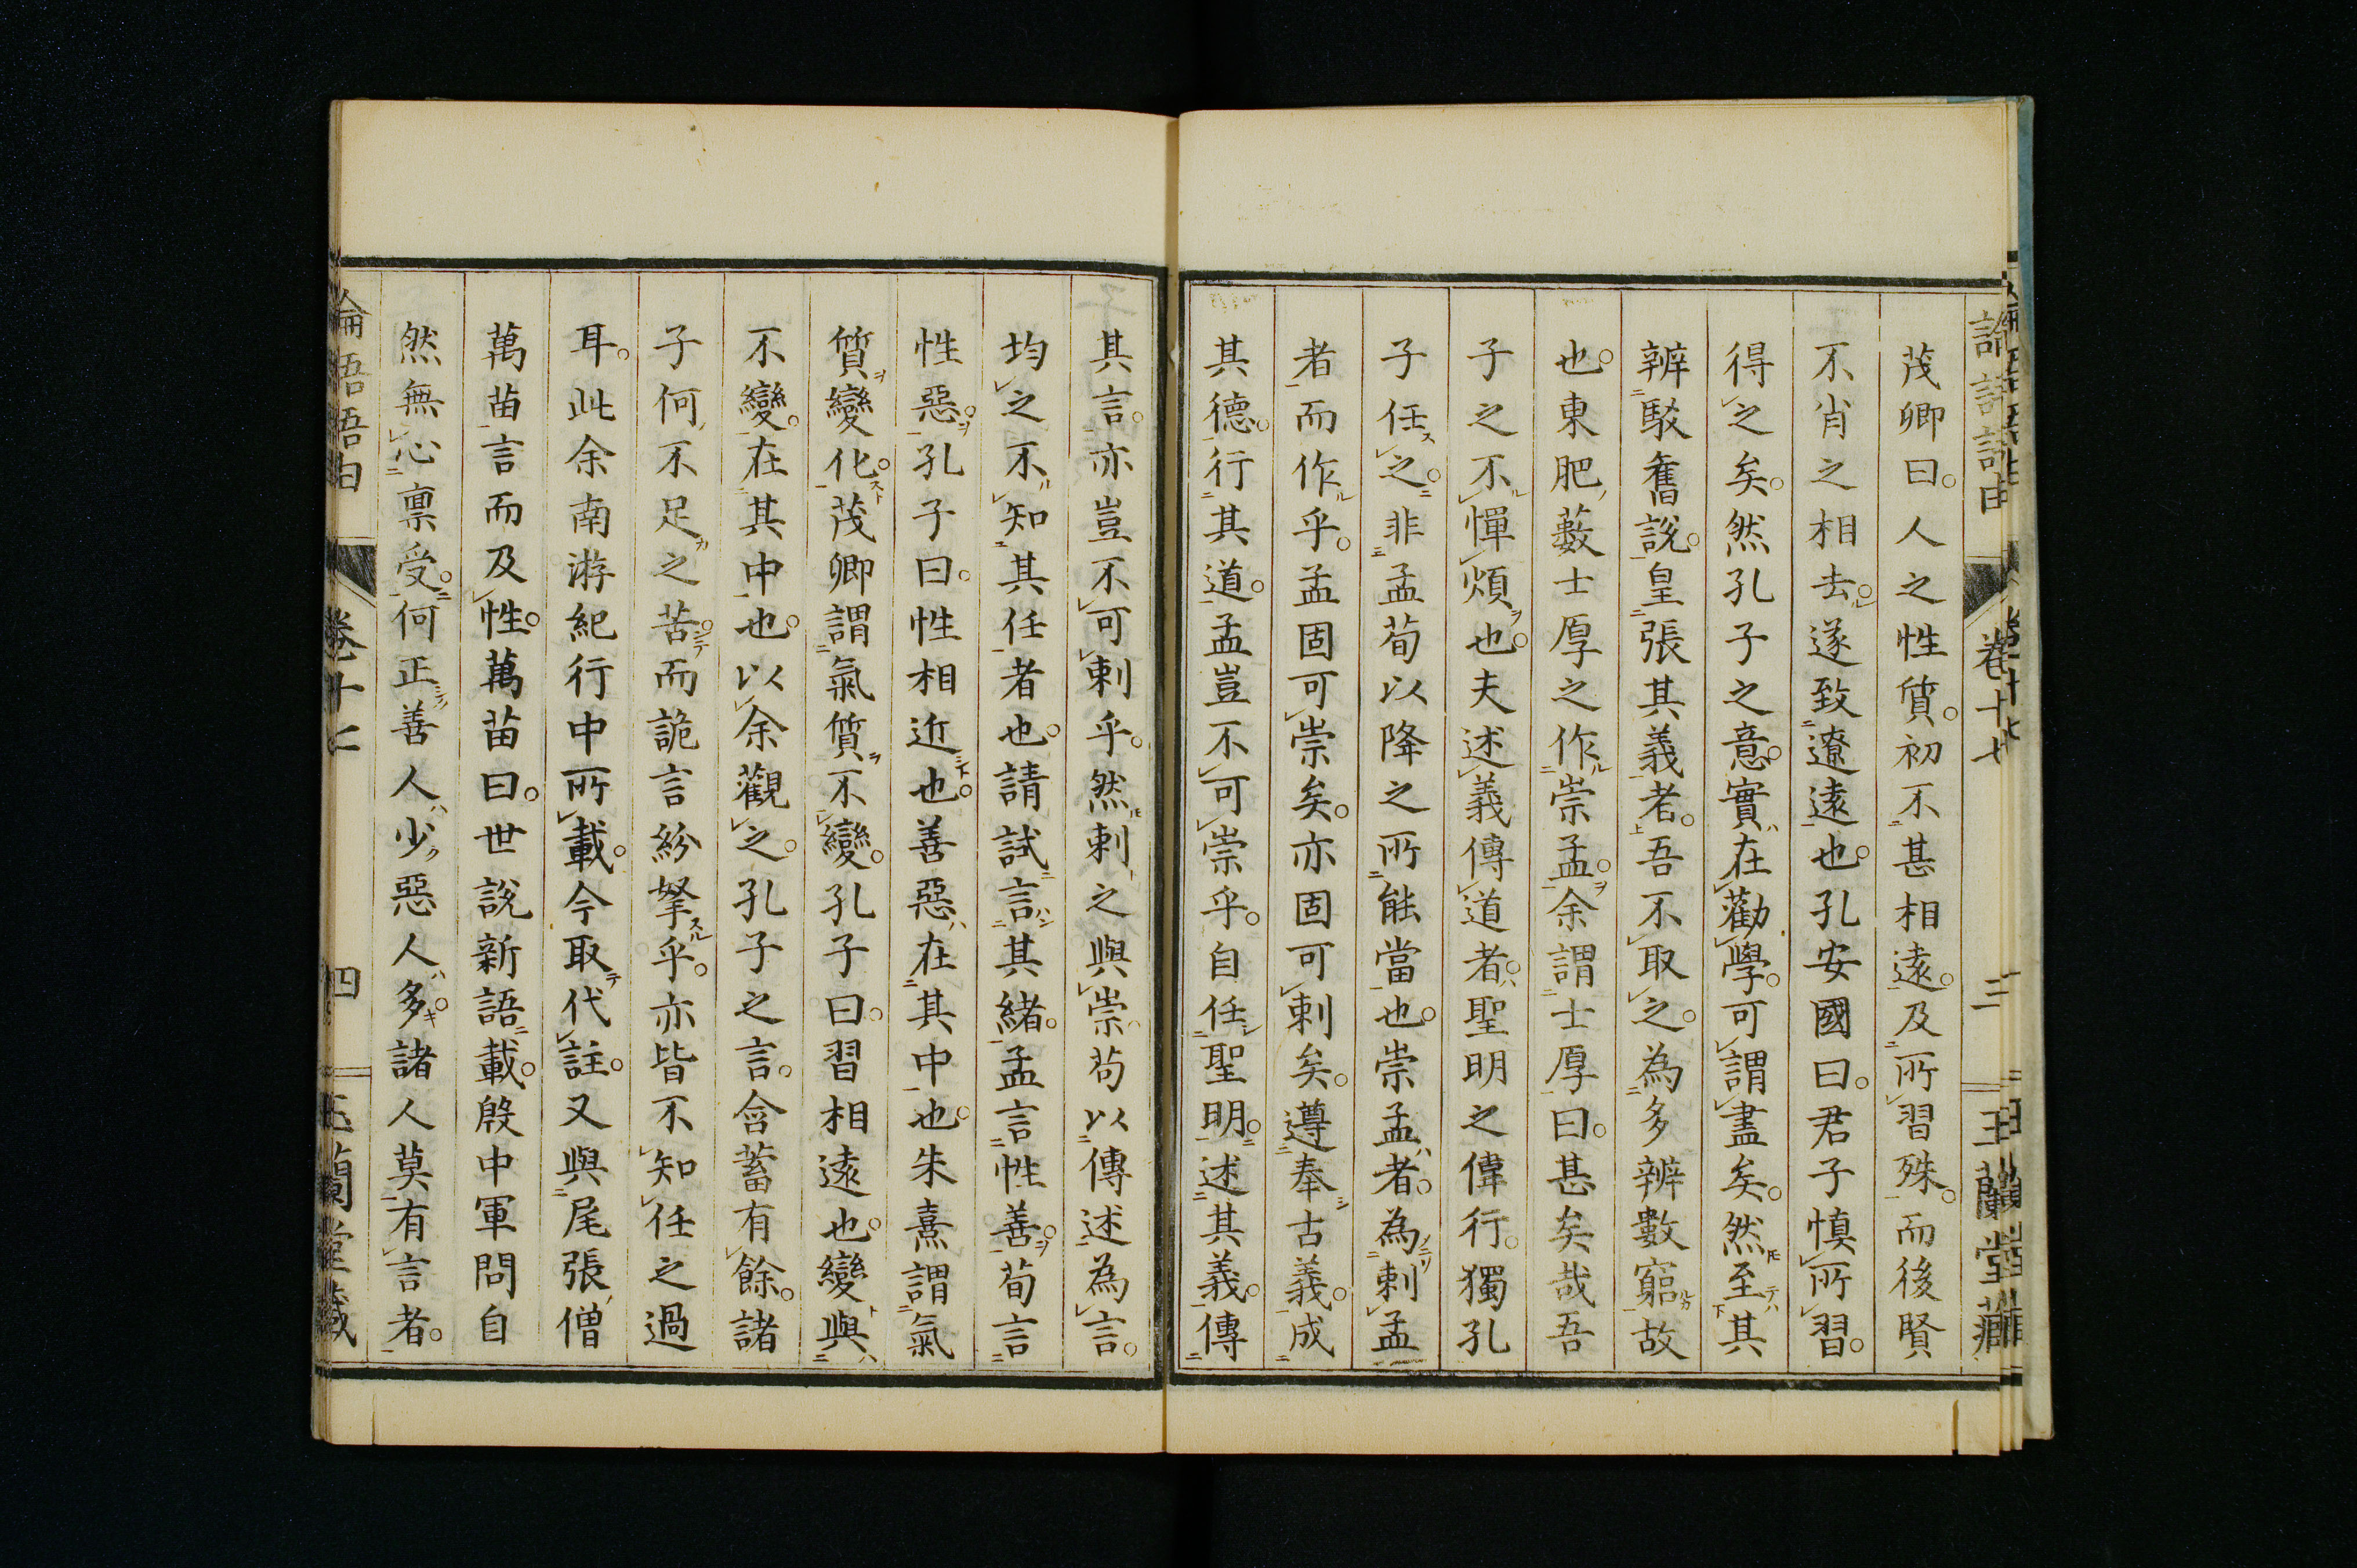 茂卿曰。人之性質。初不甚相遠。及所習殊。而後賢
不肖之相去。遂致遼遠也。孔安國曰。君子慎所習。
得之矣。然孔子之意。實在勸學。可謂盡矣。然至其
辨駁舊說。皇張其義者。吾不取之。為多辨數窮故
也。東肥藪士厚之作崇孟。余謂士厚曰。甚矣哉吾
子之不憚煩也。夫述義傳道者。聖明之偉行。獨孔
子任之。非孟荀以降之所能當也。崇孟者。為刺孟
者而作乎。孟固可崇矣。亦固可刺矣。遵奉古義。成
其德。行其道。孟豈不可崇乎。自任聖明。述其義。傳
其言。亦豈不可刺乎。然刺之與崇苟以傳述為言。
均之不知其任者也。請試言其緒。孟言性善。荀言
性惡。孔子曰。性相近也。善惡在其中也。朱熹謂氣
質變化。茂卿謂氣質不變。孔子曰。習相遠也。變與
不變。在其中也。以余觀之。孔子之言。含蓄有餘。諸
子何不足之苦。而詭言紛拏乎。亦皆不知任之過
耳。此余南游紀行中所載。今取代註。又與尾張僧
萬苗言而及性。萬苗曰。世說新語載。殷中軍問自
然無心稟受。何正善人少惡人多。諸人莫有言者。
卷十七
三
玉蘭堂藏
四